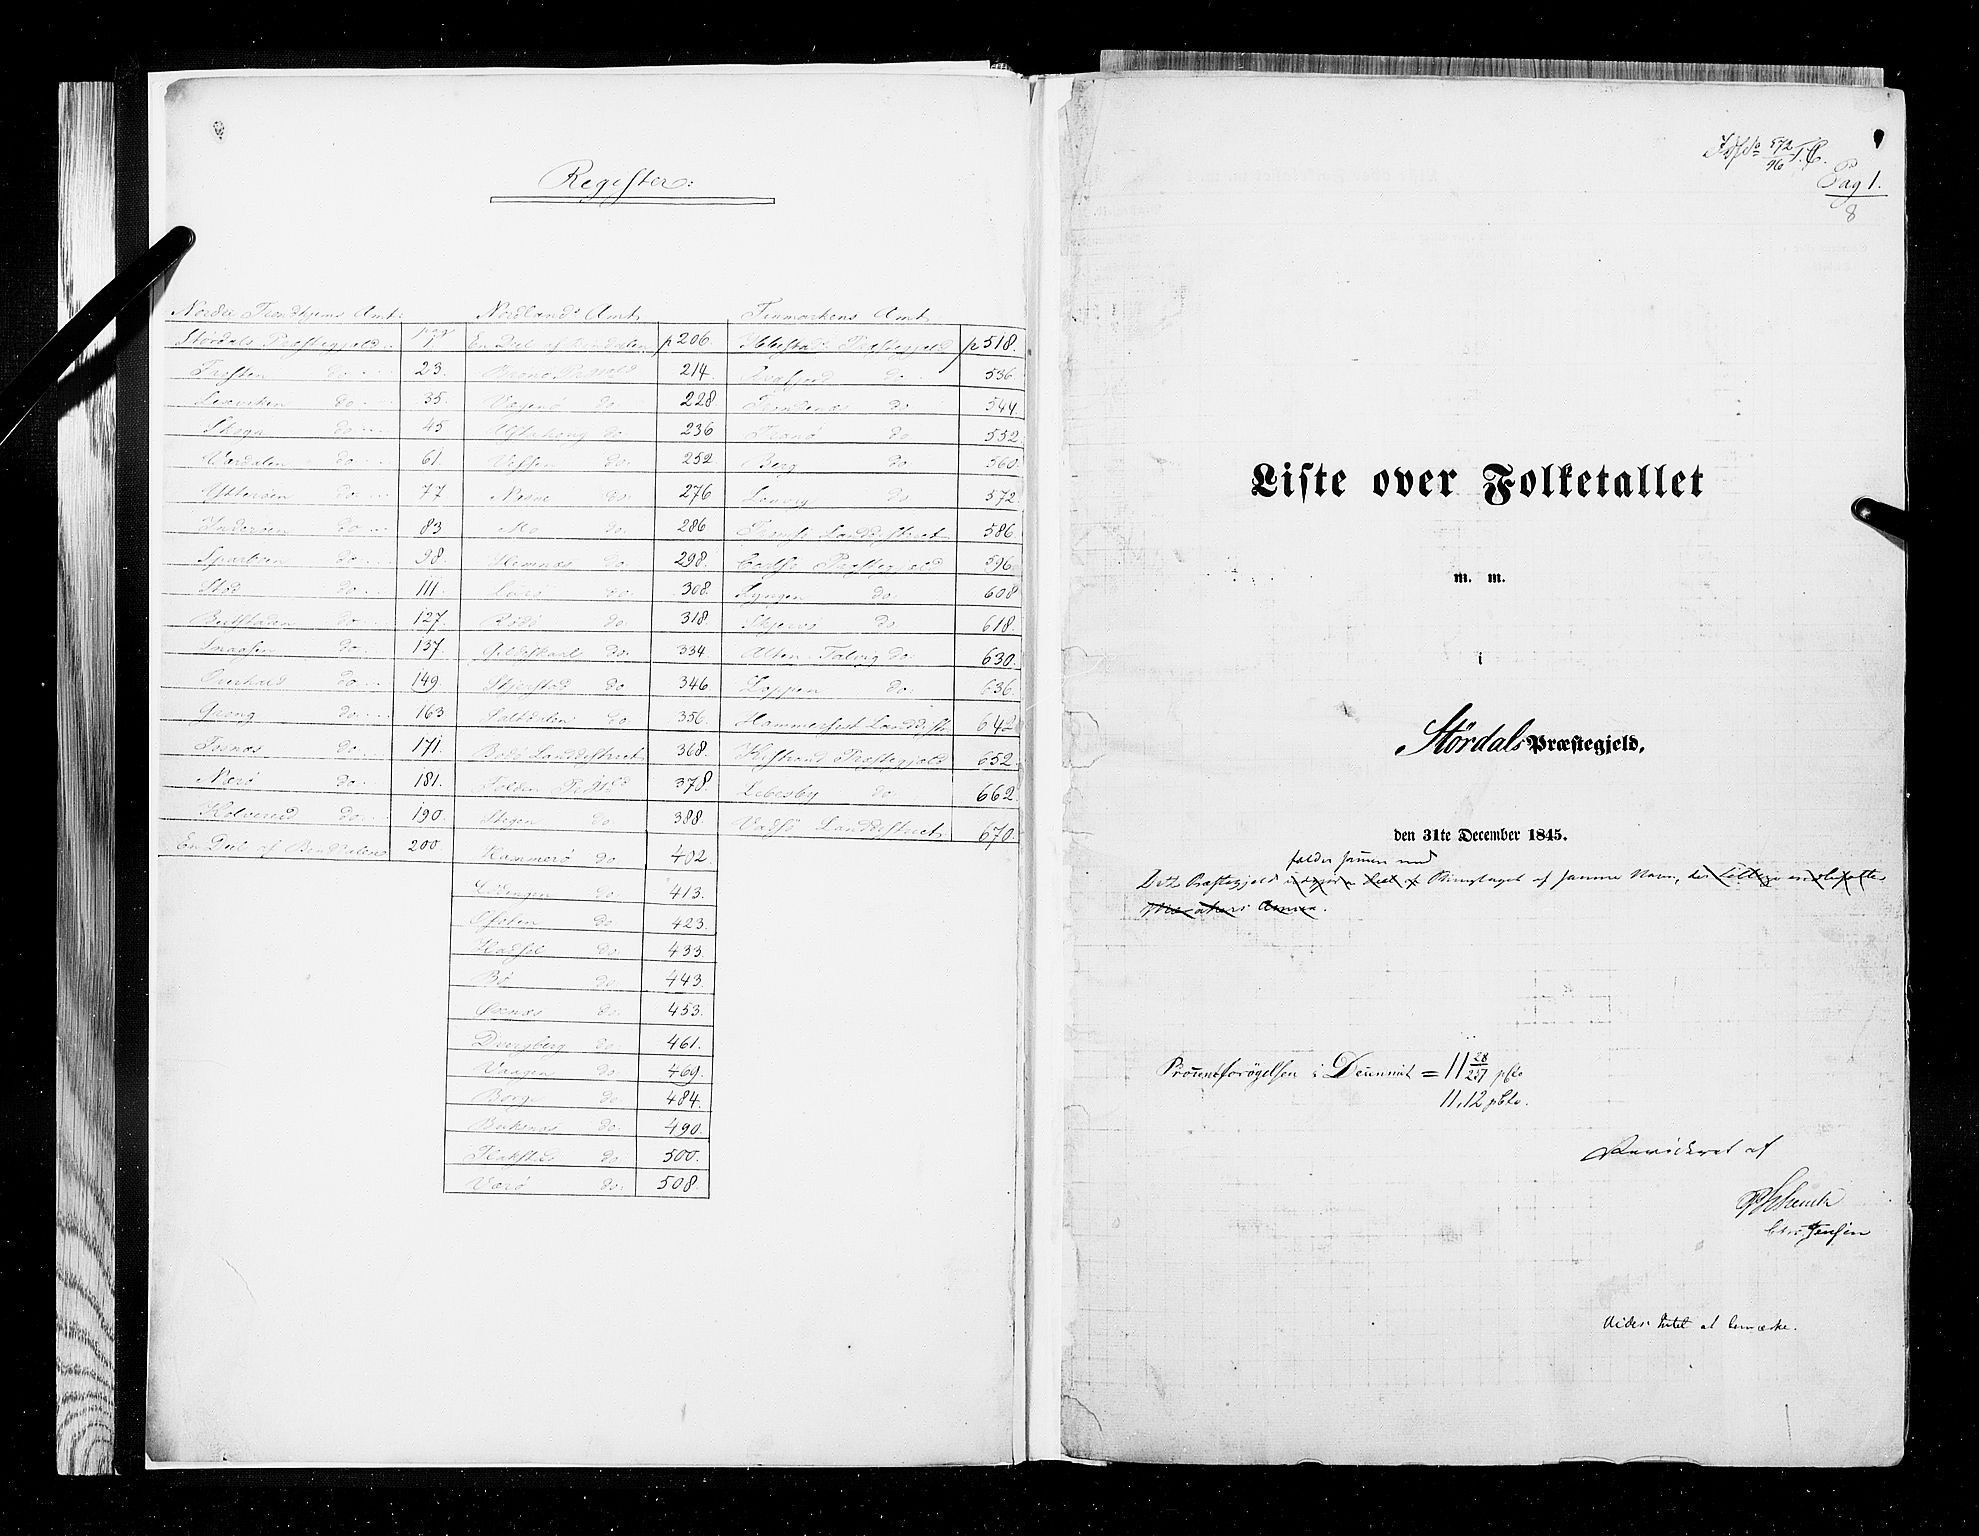 Register:
Nordre Trondhjems Amt:
Stördals Præstegjeld pag 1.
Frosten do 23.
Lexviken do 35.
Skogn do 45
Værdalen do 61.
Ytterøen do 77
Inderøen do 83
Sparboen do 98
Stod do 111.
Beitstaden do 127.
Snaasen do 137
Overhald do 149.
Grong do 163
Fosnæs do 171.
Nærö do 181.
Kolvereid do 190.
En Deel af Bindalen 200
Nordlands Amt
En Deel af Bindalen p 206.
Brönö Præstegjeld 214
Vegenö do 228
Alstahoug do 236
Vefsen do 252
Næsne do 276
Mo do 286
Hemnæs do 298.
Lurö do 308.
Rödö do 318.
Gildeskaal do 334
Skjerstad do 346
Saltdalen do 356.
Bodö Landdistrict 368.
Folden 378.
Stegen do 388.
Hammerö do 402.
Lödingen do 413.
Ofoten do 423.
Hadsel do 433
Bö do 443.
Öxnæs do 453.
Dverberg do 461.
Vaagen do 469.
Borge do 484.
Buksnæs do 490.
Flakstad do 500.
Værö do 508.
Finmarkens Amt
Ibbestads Præstegjeld p 518.
Qvæfjord do 536
Trondenæs do 544.
Tranö do 552.
Berg do 560.
Lenvig do 572
Tromsö Landdistrict 586
Carlsö Præstegjeld 596
Lyngen do 608
Skjervö do 618.
Alten-Talvig do 630.
Loppen do 636.
Hammerfest Landdistr 642
Kistrand Præstegjeld 652
Lebesby do 662.
Vadsö Landdistrict 670.
572
96
Pag 1.
8
Liste over Folketallet
m. m.
i
Stördals Præstegjeld,
den 31te December 1845.
falder sammen med
Dette Præstegjeld udgjør en Deel af Thinglaget af samme Navn,
Procentforøgelsen i Decenniet = 11 28/237 pCto
11,12 pCto.
Revideret af
Jensen
Videre Intet at bemærke.